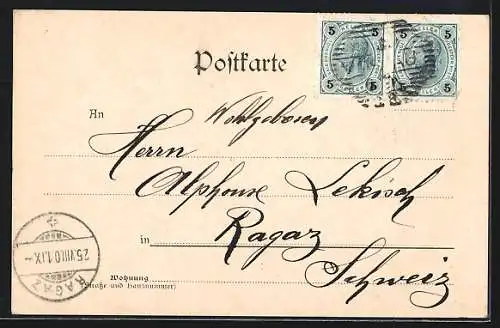 5 5
5 5 5 5
Postkarte
An Wohlgeboren
Herrn
Alphonse Lekisch
in Ragaz
Schweiz
Wohnung
(Straße und Hausnummer)
RAGAZ
25.VIII.01.IX